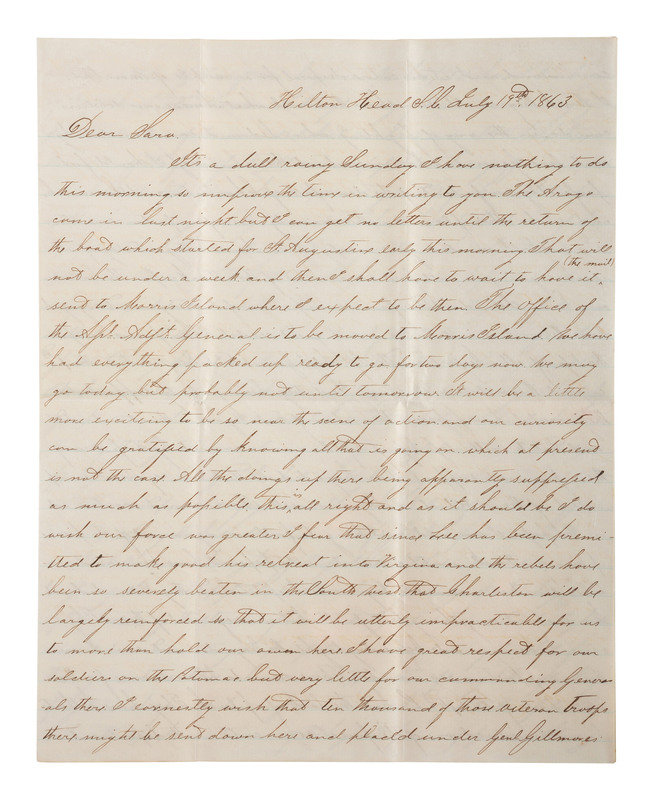 Hilton Head S.C. July 19th 1863
Dear Sara,
Its a dull rainy Sunday I have nothing to do
this morning so improve the time in writing to you The Arago
came in last night but I can get no letters until the return of
the boat which started for St. Augustine early this morning That will
(the mail)
not be under a week and then I shall have to wait to have it
sent to Morris Island where I expect to be then. The office of
the Asst. Adjt. General is to be moved to Morris Island. We have
had everything packed up ready to go for two days now. We may
go today but probably not until tomorrow It will be a little
more exciteing to be so near the scene of action and our curiosity
can be gratified by knowing all that is going on which at present
is not the case All the doings up there being apparantly suppressed
as much as possible, this, all right and as it should be I do
wish our force was greater I fear that since Lee has been premi-
tted to make good his retreat into Virgina and the rebels have
been so severely beaten in the South West that Charleston will be
largely reinforced so that it will be utterly impracticable for us
to more than hold our own here I have great respect for our
soldiers on the Potomac but very little for our commanding Gener
als there I earnestly wish that ten thousand of those veteran troops
there might be sent down here and plac'd under Genl Gillmores